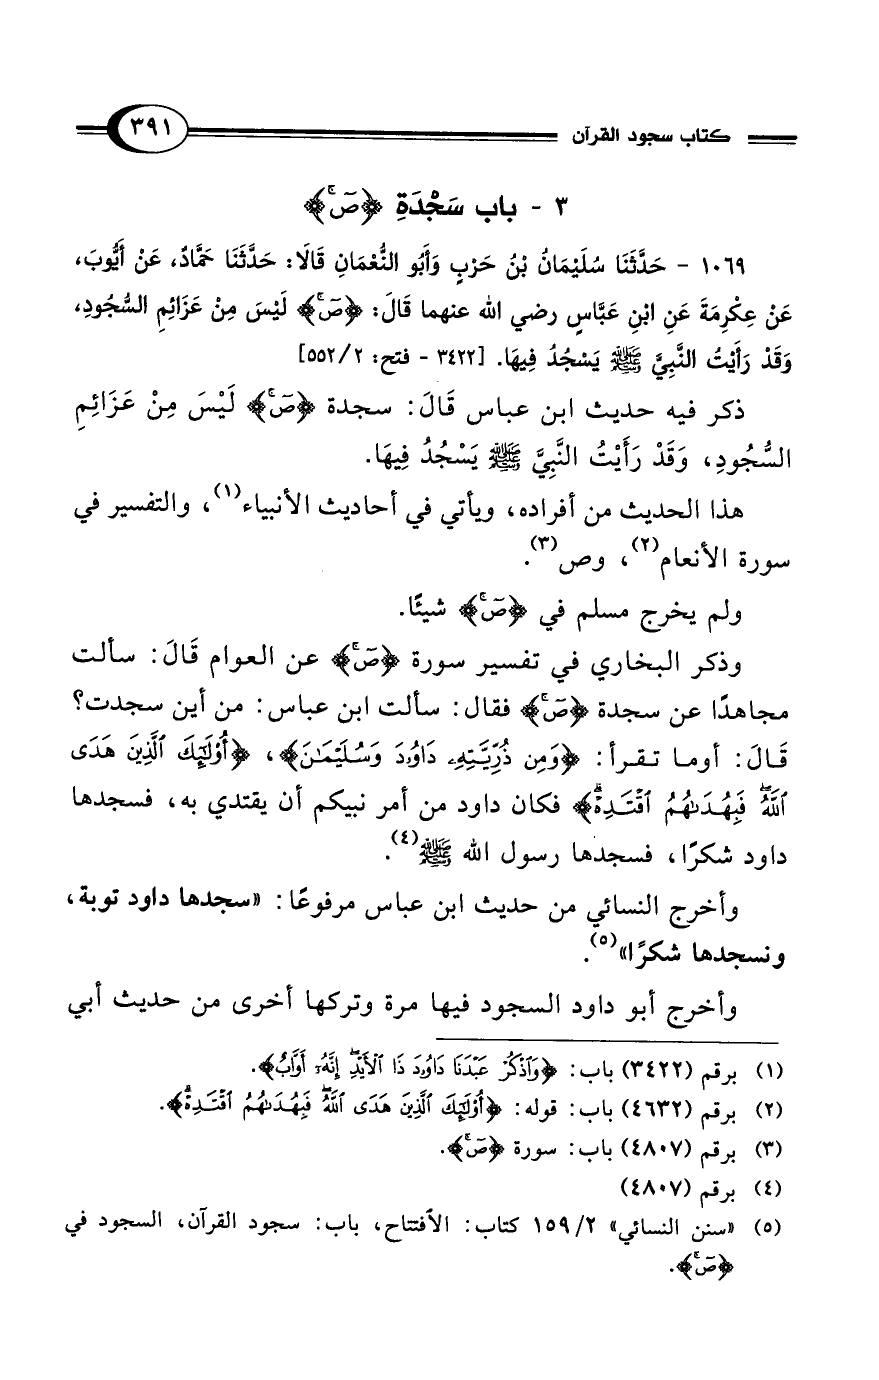 كتاب سجود القرآن ٣٩١
٣ - باب سَجْدَةِ ﴿صٓ ۚ﴾
١٠٦٩ - حَدَّثَنَا سُلَيْمَانُ بْنُ حَرْبٍ وَأَبُو النُّعْمَانِ قَالَا: حَدَّثَنَا حَمَّادٌ، عَنْ أَيُّوبَ،
عَنْ عِكْرِمَةَ عَنِ ابْنِ عَبَّاسٍ رضي الله عنهما قَالَ: ﴿صٓ ۚ﴾ لَيْسَ مِنْ عَزَائِمِ السُّجُودِ،
وَقَدْ رَأَيْتُ النَّبِيَّ ﷺ يَسْجُدُ فِيهَا. [٣٤٢٢ - فتح: ٢/ ٥٥٢]
ذكر فيه حديث ابن عباس قَالَ: سجدة ﴿صٓ ۚ﴾ لَيْسَ مِنْ عَزَائِمِ
السُّجُودِ، وَقَدْ رَأَيْتُ النَّبِيَّ ﷺ يَسْجُدُ فِيهَا.
هذا الحديث من أفراده، ويأتي في أحاديث الأنبياء(١)، والتفسير في
سورة الأنعام(٢)، وص(٣).
ولم يخرج مسلم في ﴿صٓ ۚ﴾ شيئًا.
وذكر البخاري في تفسير سورة ﴿صٓ ۚ﴾ عن العوام قَالَ: سألت
مجاهدًا عن سجدة ﴿صٓ ۚ﴾ فقال: سألت ابن عباس: من أين سجدت؟
قَالَ: أوما تقرأ: ﴿وَمِن ذُرِّيَّتِهِۦ دَاوُۥدَ وَسُلَيْمَٰنَ﴾، ﴿أُوْلَٰٓئِكَ ٱلَّذِينَ هَدَى
ٱللَّهُۖ فَبِهُدَىٰهُمُ ٱقْتَدِهْۗ﴾ فكان داود من أمر نبيكم أن يقتدي به، فسجدها
داود شكرًا، فسجدها رسول الله ﷺ(٤).
وأخرج النسائي من حديث ابن عباس مرفوعًا: «سجدها داود توبة،
ونسجدها شكرًا»(٥).
وأخرج أبو داود السجود فيها مرة وتركها أخرى من حديث أبي
(١) برقم (٣٤٢٢) باب: ﴿وَٱذْكُرْ عَبْدَنَا دَاوُۥدَ ذَا ٱلْأَيْدِۖ إِنَّهُۥٓ أَوَّابٌ﴾.
(٢) برقم (٤٦٣٢) باب: قوله: ﴿أُوْلَٰٓئِكَ ٱلَّذِينَ هَدَى ٱللَّهُۖ فَبِهُدَىٰهُمُ ٱقْتَدِهْۗ﴾.
(٣) برقم (٤٨٠٧) باب: سورة ﴿صٓ ۚ﴾.
(٤) برقم (٤٨٠٧)
(٥) «سنن النسائي» ٢/ ١٥٩ كتاب: الأفتتاح، باب: سجود القرآن، السجود في
﴿صٓ ۚ﴾.